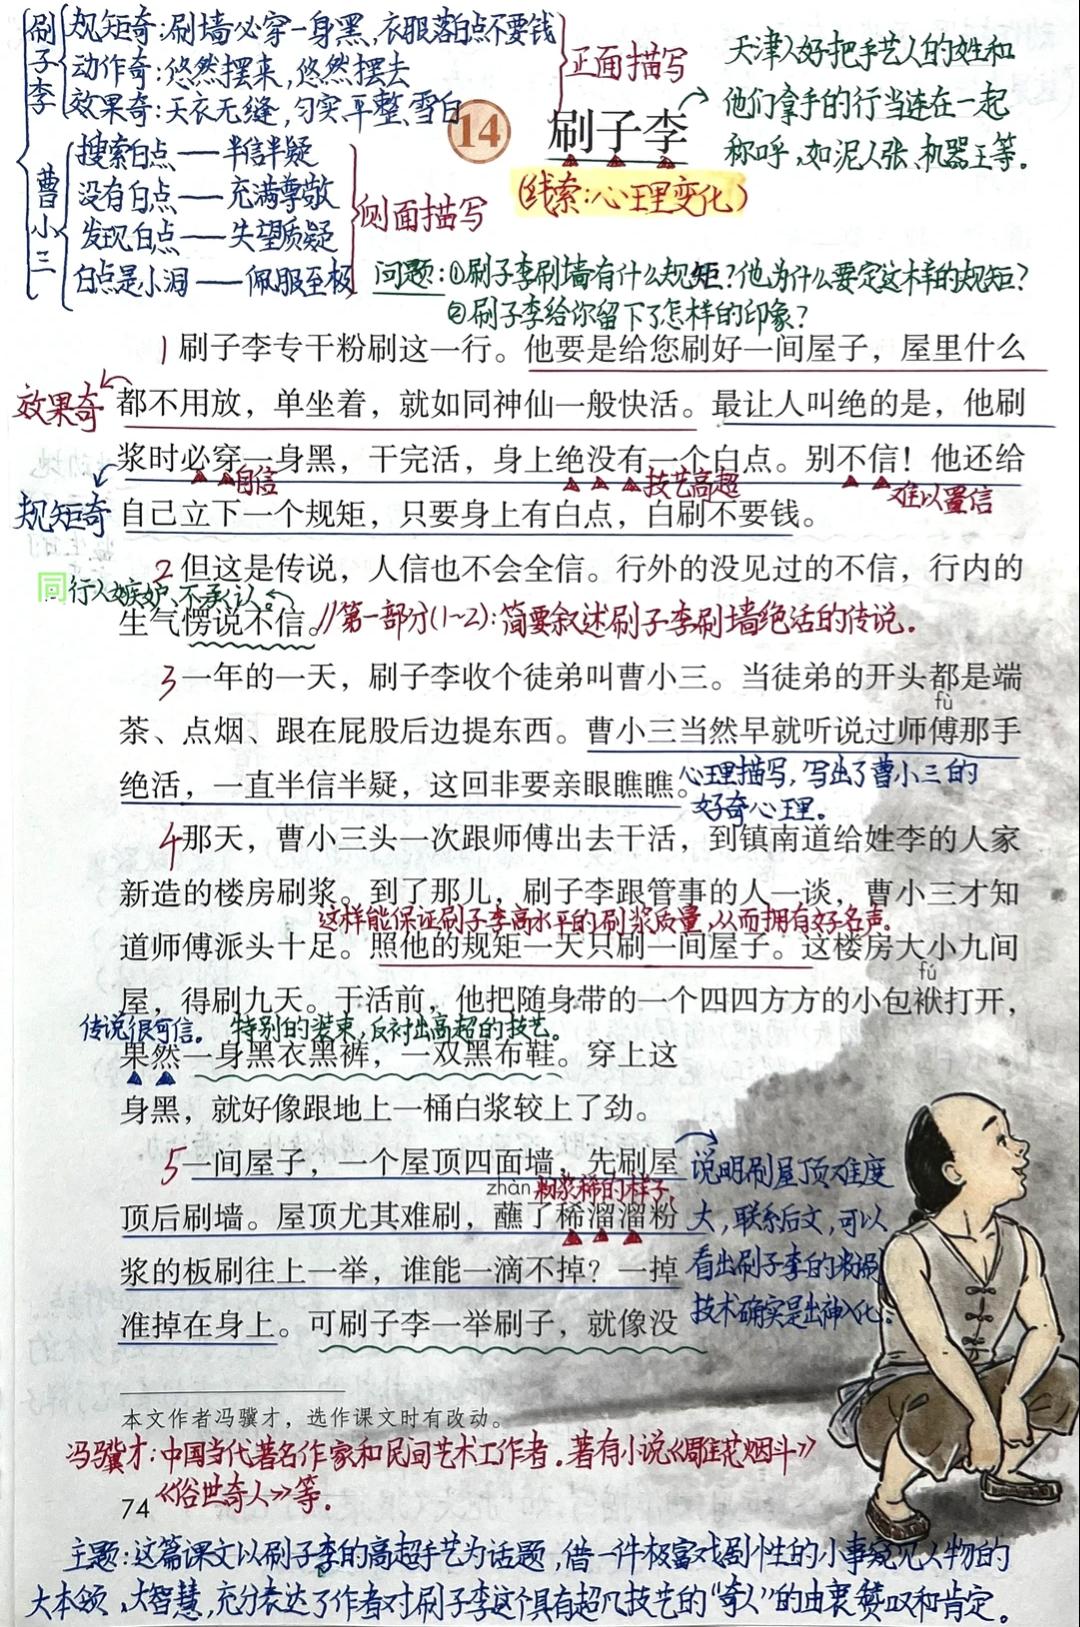 刷子李
规矩奇:刷墙必穿一身黑,衣服落白点不要钱
动作奇:悠然摆来,悠然摆去
效果奇:天衣无缝,匀实平整、雪白
正面描写
曹小三
搜索白点——半信半疑
没有白点——充满尊敬
发现白点——失望质疑
白点是小洞——佩服至极
侧面描写
14 刷子李
(线索:心理变化)
天津人好把手艺人的姓和
他们拿手的行当连在一起
称呼,如泥人张、机器王等.
问题:①刷子李刷墙有什么规矩?他为什么要定这样的规矩?
②刷子李给你留下了怎样的印象?
1 刷子李专干粉刷这一行。他要是给您刷好一间屋子，屋里什么
效果奇
都不用放，单坐着，就如同神仙一般快活。最让人叫绝的是，他刷
浆时必穿一身黑，干完活，身上绝没有一个白点。别不信！他还给
自信 技艺高超 难以置信
规矩奇
自己立下一个规矩，只要身上有白点，白刷不要钱。
2 但这是传说，人信也不会全信。行外的没见过的不信，行内的
同行人嫉妒、不承认。
生气愣说不信。//第一部分(1~2):简要叙述刷子李刷墙绝活的传说.
3 一年的一天，刷子李收个徒弟叫曹小三。当徒弟的开头都是端
fù
茶、点烟、跟在屁股后边提东西。曹小三当然早就听说过师傅那手
绝活，一直半信半疑，这回非要亲眼瞧瞧。
心理描写,写出了曹小三的
好奇心理.
4 那天，曹小三头一次跟师傅出去干活，到镇南道给姓李的人家
新造的楼房刷浆。到了那儿，刷子李跟管事的人一谈，曹小三才知
这样能保证刷子李高水平的刷浆质量,从而拥有好名声.
道师傅派头十足。照他的规矩一天只刷一间屋子。这楼房大小九间
fú
屋，得刷九天。干活前，他把随身带的一个四四方方的小包袱打开，
传说很可信。 特别的装束,反衬出高超的技艺.
果然一身黑衣黑裤，一双黑布鞋。穿上这
身黑，就好像跟地上一桶白浆较上了劲。
5 一间屋子，一个屋顶四面墙，先刷屋
zhàn 粉浆稀的样子.
顶后刷墙。屋顶尤其难刷，蘸了稀溜溜粉
浆的板刷往上一举，谁能一滴不掉？一掉
准掉在身上。可刷子李一举刷子，就像没
说明刷屋顶难度
大,联系后文,可以
看出刷子李的粉刷
技术确实是出神入化.
本文作者冯骥才，选作课文时有改动。
冯骥才:中国当代著名作家和民间艺术工作者.著有小说《雕花烟斗》
《俗世奇人》等.
74
主题:这篇课文以刷子李的高超手艺为话题,借一件极富戏剧性的小事窥见人物的
大本领、大智慧,充分表达了作者对刷子李这个具有超凡技艺的“奇人”的由衷赞叹和肯定。